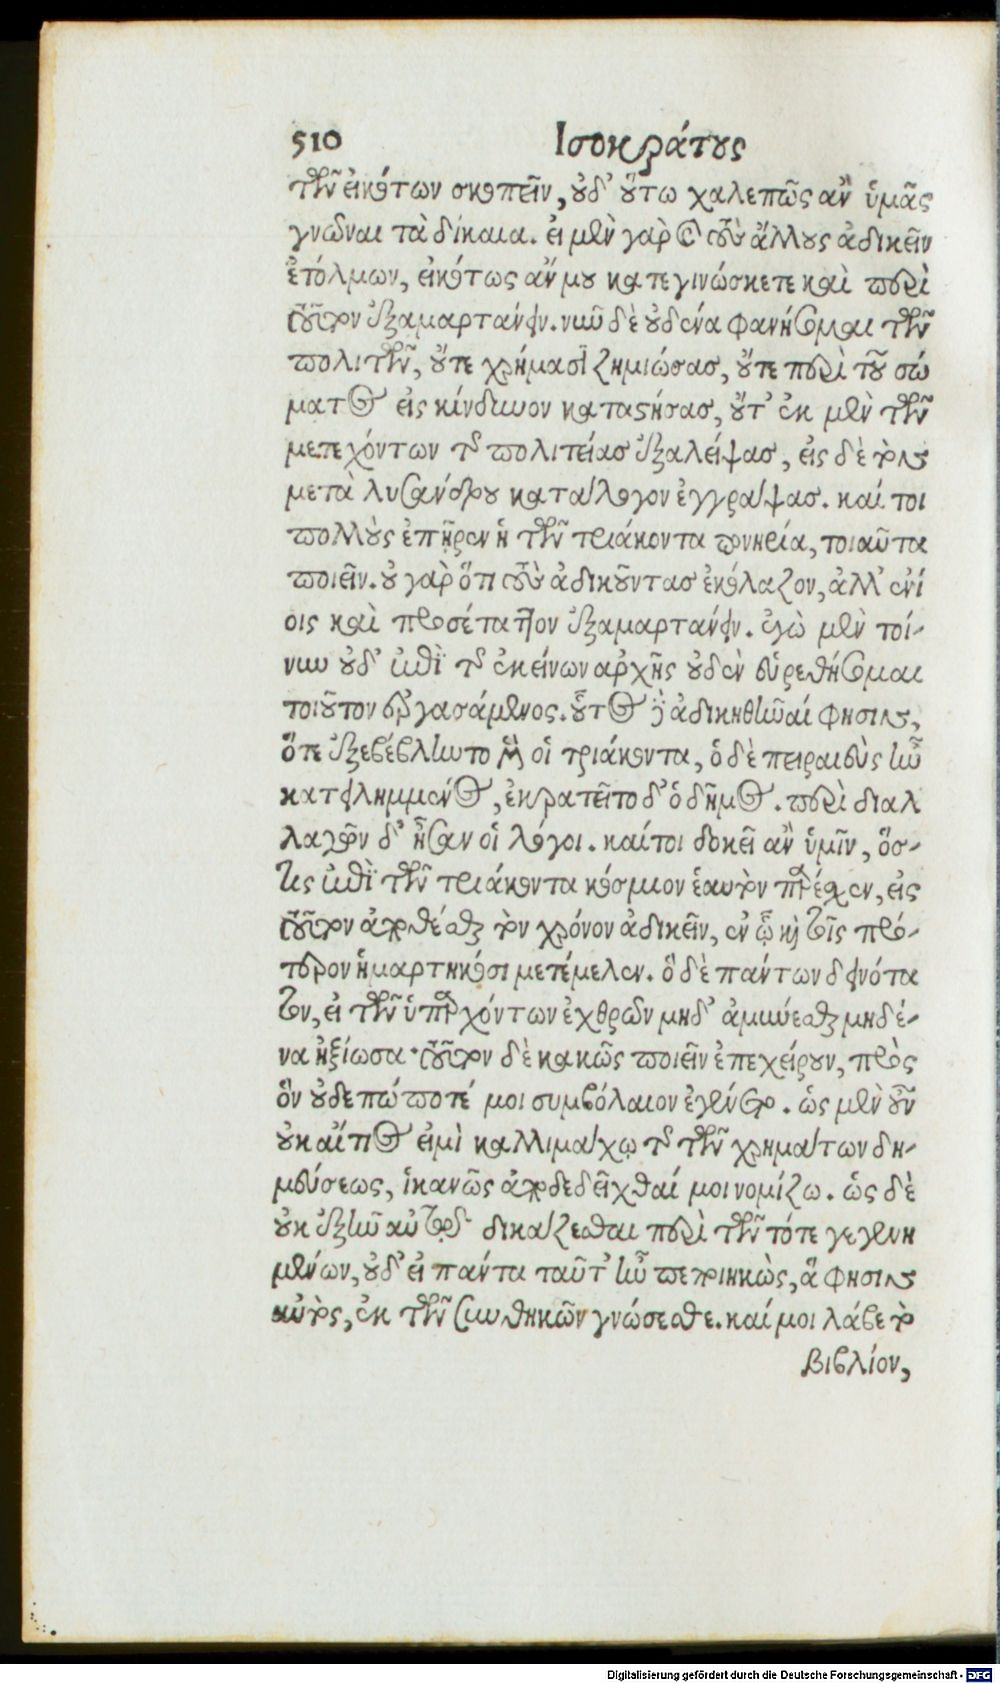 510 Ισοκράτους
τῶν εἰκότων σκοπεῖν, οὐδ' οὕτω χαλεπῶς ἂν ὑμᾶς
γνῶναι τὰ δίκαια. εἰ μὲν γὰρ καὶ τοὺς ἄλλους ἀδικεῖν
ἐτόλμων, εἰκότως ἄν μου κατεγινώσκετε καὶ περὶ
τοῦτον ἐξαμαρτάνειν. νῦν δὲ οὐδένα φανήσομαι τῶν
πολιτῶν, οὔτε χρήμασι ζημιώσας, οὔτε περὶ τοῦ σώ
ματος εἰς κίνδυνον καταστήσας, οὔτ' ἐκ μὲν τῶν
μετεχόντων τῆς πολιτείας ἐξαλείψας, εἰς δὲ τὸν
μετὰ λυσάνδρου κατάλογον ἐγγράψας. καί τοι
πολλοὺς ἐπῆρεν ἡ τῶν τριάκοντα πονηρία, τοιαῦτα
ποιεῖν. οὐ γὰρ ὅτι τοὺς ἀδικοῦντας ἐκόλαζον, ἀλλ' ἐνί
οις καὶ προσέταττον ἐξαμαρτάνειν. ἐγὼ μὲν τοί-
νυν οὐδ' ἐπὶ τῆς ἐκείνων ἀρχῆς οὐδὲν εὑρεθήσομαι
τοιοῦτον ἐργασάμενος. οὗτος δὲ ἀδικηθῆναί φησιν,
ὅτε ἐξεβέβληντο μὲν οἱ τριάκοντα, ὁ δὲ πειραιεὺς ἦν
κατειλημμένος, ἐκρατεῖτο δ' ὁ δῆμος. περὶ διαλ
λαγῶν δ' ἦσαν οἱ λόγοι. καίτοι δοκεῖ ἂν ὑμῖν, ὅσ-
τις ἐπὶ τῶν τριάκοντα κόσμιον ἑαυτὸν παρέχεν, εἰς
τοῦτον ἀποθέσθαι τὸν χρόνον ἀδικεῖν, ἐν ᾧ καὶ τοῖς πρό-
τερον ἡμαρτηκόσι μετέμελεν. ὃ δὲ πάντων δεινότα
τον, εἰ τῶν ὑπαρχόντων ἐχθρῶν μηδ' ἀμύνεσθαι μηδέ-
να ἠξίωσα· τοῦτον δὲ κακῶς ποιεῖν ἐπεχείρουν, πρὸς
ὃν οὐδεπώποτέ μοι συμβόλαιον ἐγένετο. ὡς μὲν οὖν
οὐκ αἴτιος εἰμὶ καλλιμάχῳ τῆς τῶν χρημάτων δη-
μεύσεως, ἱκανῶς ἀποδεδεῖχθαί μοι νομίζω. ὡς δὲ
οὐκ ἐξῆν αὐτῷ δικάζεσθαι περὶ τῶν τότε γεγενη
μένων, οὐδ' εἰ πάντα ταῦτ' ἦν πεποιηκὼς, ἅ φησιν
αὐτὸς, ἐκ τῶν συνθηκῶν γνώσεσθε. καί μοι λάβε τὸ
βιβλίον,
Digitalisierung gefördert durch die Deutsche Forschungsgemeinschaft - DFG